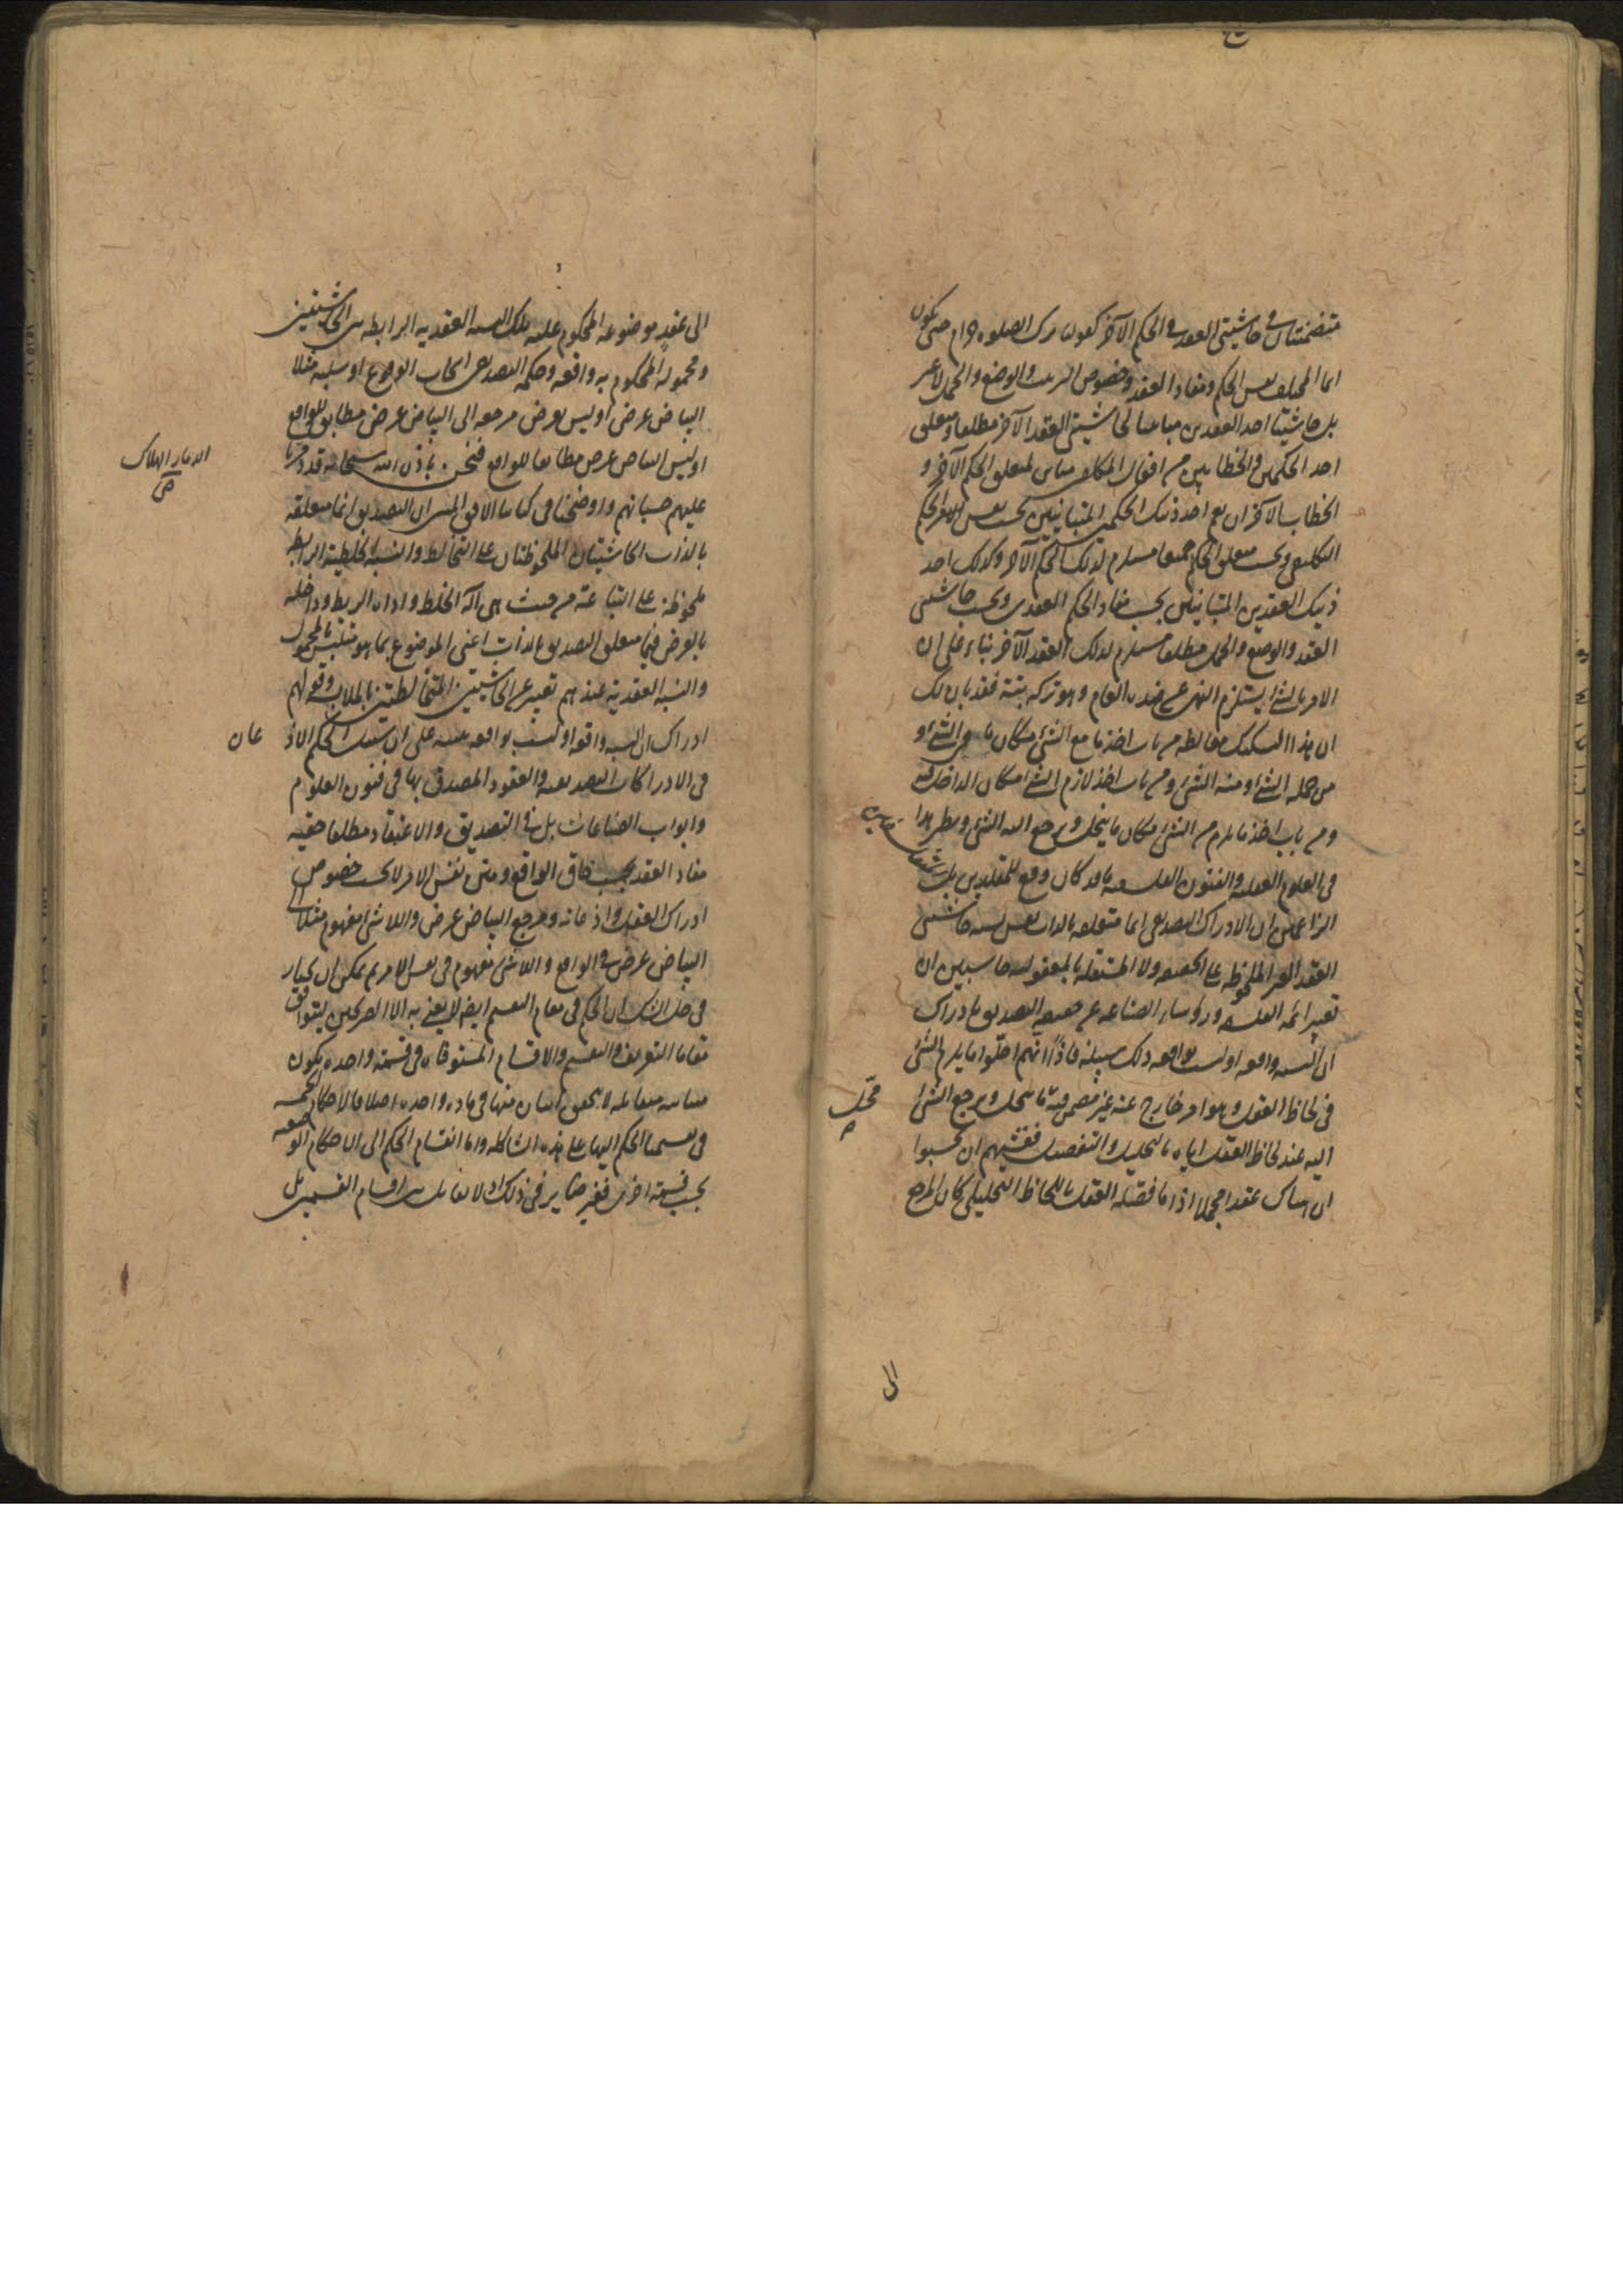 متضمنتان في حاشيتي العقد والحكم الآخر كقولنا ترك الصلوه حرام حتى يكون
انما المختلف نفس الحكم ومفاد العقد وخصوص الربط والوضع والحمل لا غير
بل حاشيتا احد العقدين مباينتا لحاشيتي العقد الآخر مطلقا ومتعلق
احد الحكمين والخطابين من افعال المكلف مباين لمتعلق الحكم الآخر و
الخطاب الآخر احد ذينك الحكمين المتباينين بحسب نفس الحكم
التكليفي وبحسب متعلق الحكم جميعا مستلزم لذلك الحكم الآخر وكذلك احد
ذينك العقدين المتباينين بحسب مفاد الحكم العقدي وبحسب حاشيتي
العقد والوضع والحمل مطلقا مستلزم لذلك العقد الآخر بناء على ان
الامر بالشئ يستلزم النهي عن ضده العام وهو تركه بتة فقد بان لك
ان هذا التشكيك مغالطه من باب اخذ ما مع الشئ مكان ما هو الشئ او
من جملة الشئ او منه الشئ ومن باب اخذ لازم الشئ مكان الداخل فيه
ومن باب اخذ ما يلزم من الشئ مكان ما ينحل ويرجع اليه الشئ ونظير هذا
في العلوم العقليه والفنون الفلسفيه ما قد كان وقع للمقلدين
الزاعمين ان الادراك التصديقي انما متعلقه بالذات نفس نسبه حاشيتي
العقد الغير الملحوظه على الحقيقه ولا المستقله بالمعقوليه حاسبين ان
تعبير ائمه الفلسفه ورؤساء الصناعه عن حقيقه التصديق بادراك
ان النسبه واقعه او ليست بواقعه ذلك سبيله فاذا انهم احلوا ما يلزم الشئ
في لحاظ العقل وهو امر خارج عنه غير مضمن فيه ما ينحل ويرجع الشئ
اليه عند لحاظ العقل اياه بالتحليل والتفصيل فغشيهم ان حسبوا
ان هناك عقدا مجملا اذا ما فصله العقل باللحاظ التحليلي كان المرجع
محل
الى
الى عقد موضوعه المحكوم عليه تلك النسبه العقديه الرابطه بين الحاشيتين
ومحموله المحكوم به واقعه وحكمه التصديقي ايجاب الوقوع او سلبه مثلا
البياض عرض او ليس بعرض مرجعه الى البياض عرض مطابق للواقع
او ليس البياض عرض مطابقا للواقع فنحن باذن الله سبحانه قد دمرنا
عليهم حسبانهم واوضحنا في كتابنا الافق المبين ان التصديق انما متعلقه
بالذات الحاشيتان الملحوظتان على التخالط والنسبه الخلطية الرابطه
ملحوظة على التباعة من حيث هي آلة الخلط واداه الربط وداخله
بالعرض فيما متعلق التصديق بالذات اعني الموضوع بما هو متلبس بالمحمول
والنسبه العقدية عندهم تعبير عن الحاشيتين المتخالطتين بالملابسه وقولهم
ادراك ان النسبه واقعه او ليست بواقعه تنبيه على ان سبيل الحكم
في الادراكات التصديقيه والعقود المصدق بها في فنون العلوم
وابواب الصناعات بل في التصديق والاعتقاد مطلقا حقيه
مفاد العقد بحسب حاق الواقع ومتن نفس الامر لا بحسب خصوص
ادراك العقل واذعانه ومرجع البياض عرض واللاشئ مفهوم مثلا الى
البياض عرض في الواقع واللاشئ مفهوم في نفس الامر ثم يمكن ان يختار
في حل الشك ان الحكم في مقام التقسيم ايضا لا يعني به الا الصريحين ليتوافق
مقاما التعريف والتقسيم والاقسام المستوفاه في قسمة واحده يكون
متباينه متقابله لا يتحقق اثنان منها في ماده واحده اصلا فالاحكام الخمسه
في تقسيمنا الحكم اليها على هذه الشاكله واما انقسام الحكم الى الاحكام الوضعيه
بحسب قسمة اخرى فغير ضائر في ذلك اذ لا تقابل بين اقسام القسمين بل
الدمار الهلاك
ص